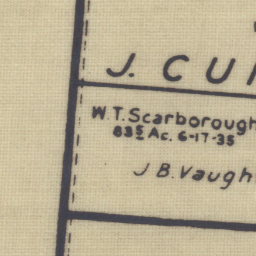 J. CU
W.T. Scarborough
83⁵ Ac. 6-17-35
J B. Vaugh